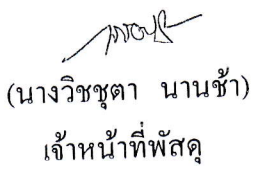 (นางวิชชุตา นานช้า)
เจ้าหน้าที่พัสดุ